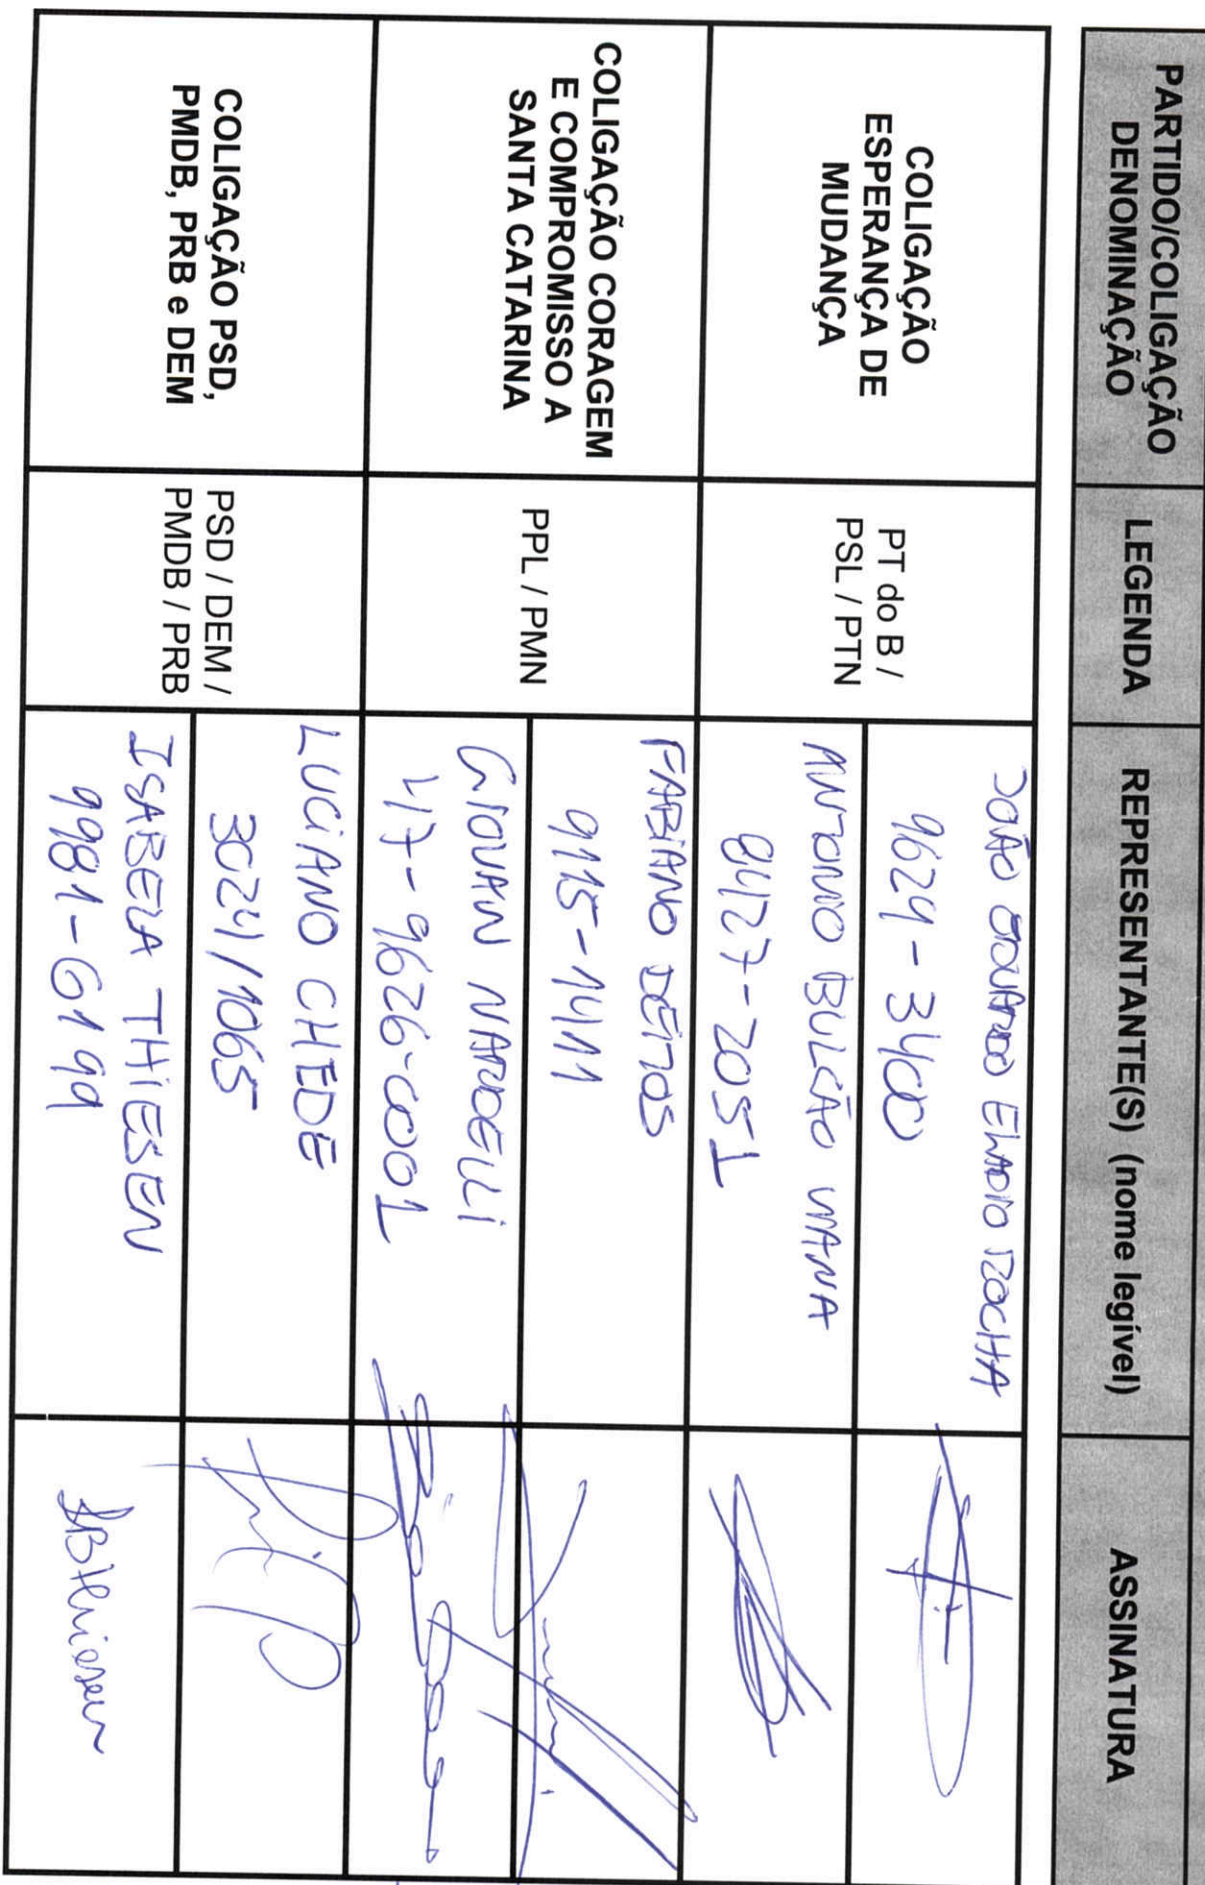 PARTIDO/COLIGAÇÃO
DENOMINAÇÃO
LEGENDA
REPRESENTANTE(S) (nome legível)
ASSINATURA
COLIGAÇÃO
ESPERANÇA DE
MUDANÇA
PT do B /
PSL / PTN
JOÃO EDUARDO ELADIO ROCHA
9629-3400
ANTONIO BULCÃO VIANA
8427-2051
COLIGAÇÃO CORAGEM
E COMPROMISSO A
SANTA CATARINA
PPL / PMN
FABIANO DEITOS
9115-1411
GIOVAN NARDELLI
47-9626-0001
COLIGAÇÃO PSD,
PMDB, PRB e DEM
PSD / DEM /
PMDB / PRB
LUCIANO CHEDE
3024/1065
ISABELA THIESEN
9981-6199